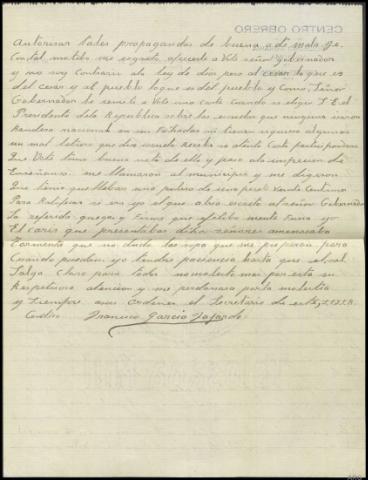 CENTRO OBRERO
Autorizar tales propagandas de buena o de mala fe.
Cual motibo me segrato ofrecerle a Vste señor Gobernador
y me soy Contrario ala ley de dios pero al cesar lo que es
del cesar y al pueblo loque es del pueblo y Como Señor
Gobernador he remeti a Vste una carta cuando se eligio S E el
Presidente dela Republica sobre las escuelas que ninguna isaron
bandera nacional en sus fachadas ni tienen siquiera algunas
un mal letrero que dia escuela
Que Vste tomo buena nota de ello y pese ala impresion de
me llamaron al municipio y me digeron
Que tenia que llebar una poliza de una peseta Veinte Centimos
Para Ratificar si era yo el que abia escrito al señor Gobernador
La referida quega y firme que efetiba mente Era yo
El caris que presentiban dichos señores amenasaba
tormenta que no dudo las capa que me preparan para
Cuando puedan yo tendre paciencia hasta que el sol
Salga Claro para todos no molesto mas por esta su
Respetuosa atencion y me perdonara porla molestia
y Siempre asus ordenes el Secretario de este
Centro Francisco Garcia Fajardo